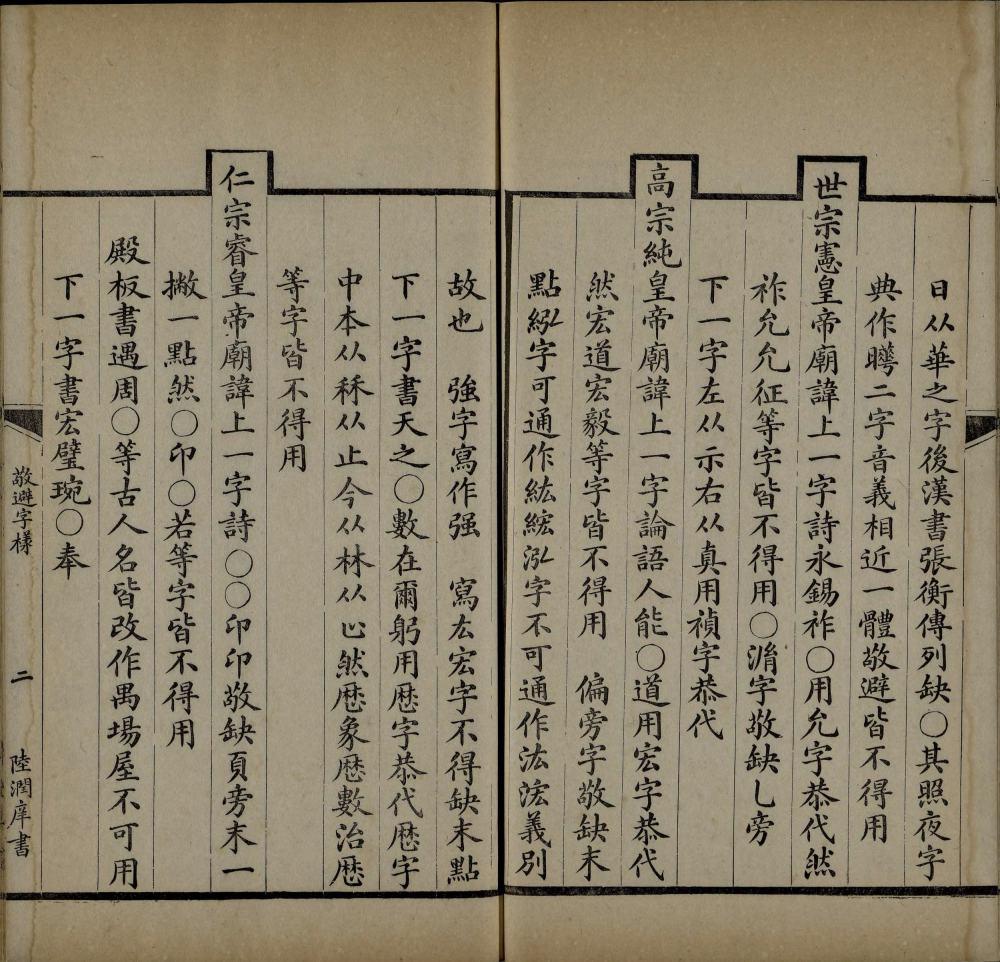 日从華之字後漢書張衡傳列缺〇其照夜字
典作曄二字音義相近一體敬避皆不得用
世宗憲皇帝廟諱上一字詩永錫祚〇用允字恭代然
祚允允征等字皆不得用〇㳙字敬缺乚旁
下一字左从示右从真用禎字恭代
高宗純皇帝廟諱上一字論語人能〇道用宏字恭代
然宏道宏毅等字皆不得用 偏旁字敬缺末
點紭字可通作紘綋泓字不可通作汯浤義別
故也 強字寫作强 寫厷宏字不得缺末點
下一字書天之〇數在爾躬用歴字恭代歴字
中本从秝从止今从林从心然歴象歴數治歴
等字皆不得用
仁宗睿皇帝廟諱上一字詩〇〇印印敬缺頁旁末一
撇一點然〇印〇若等字皆不得用
殿板書遇周〇等古人名皆改作禺場屋不可用
下一字書宏璧琬〇奉
敬避字樣
二
陸潤庠書